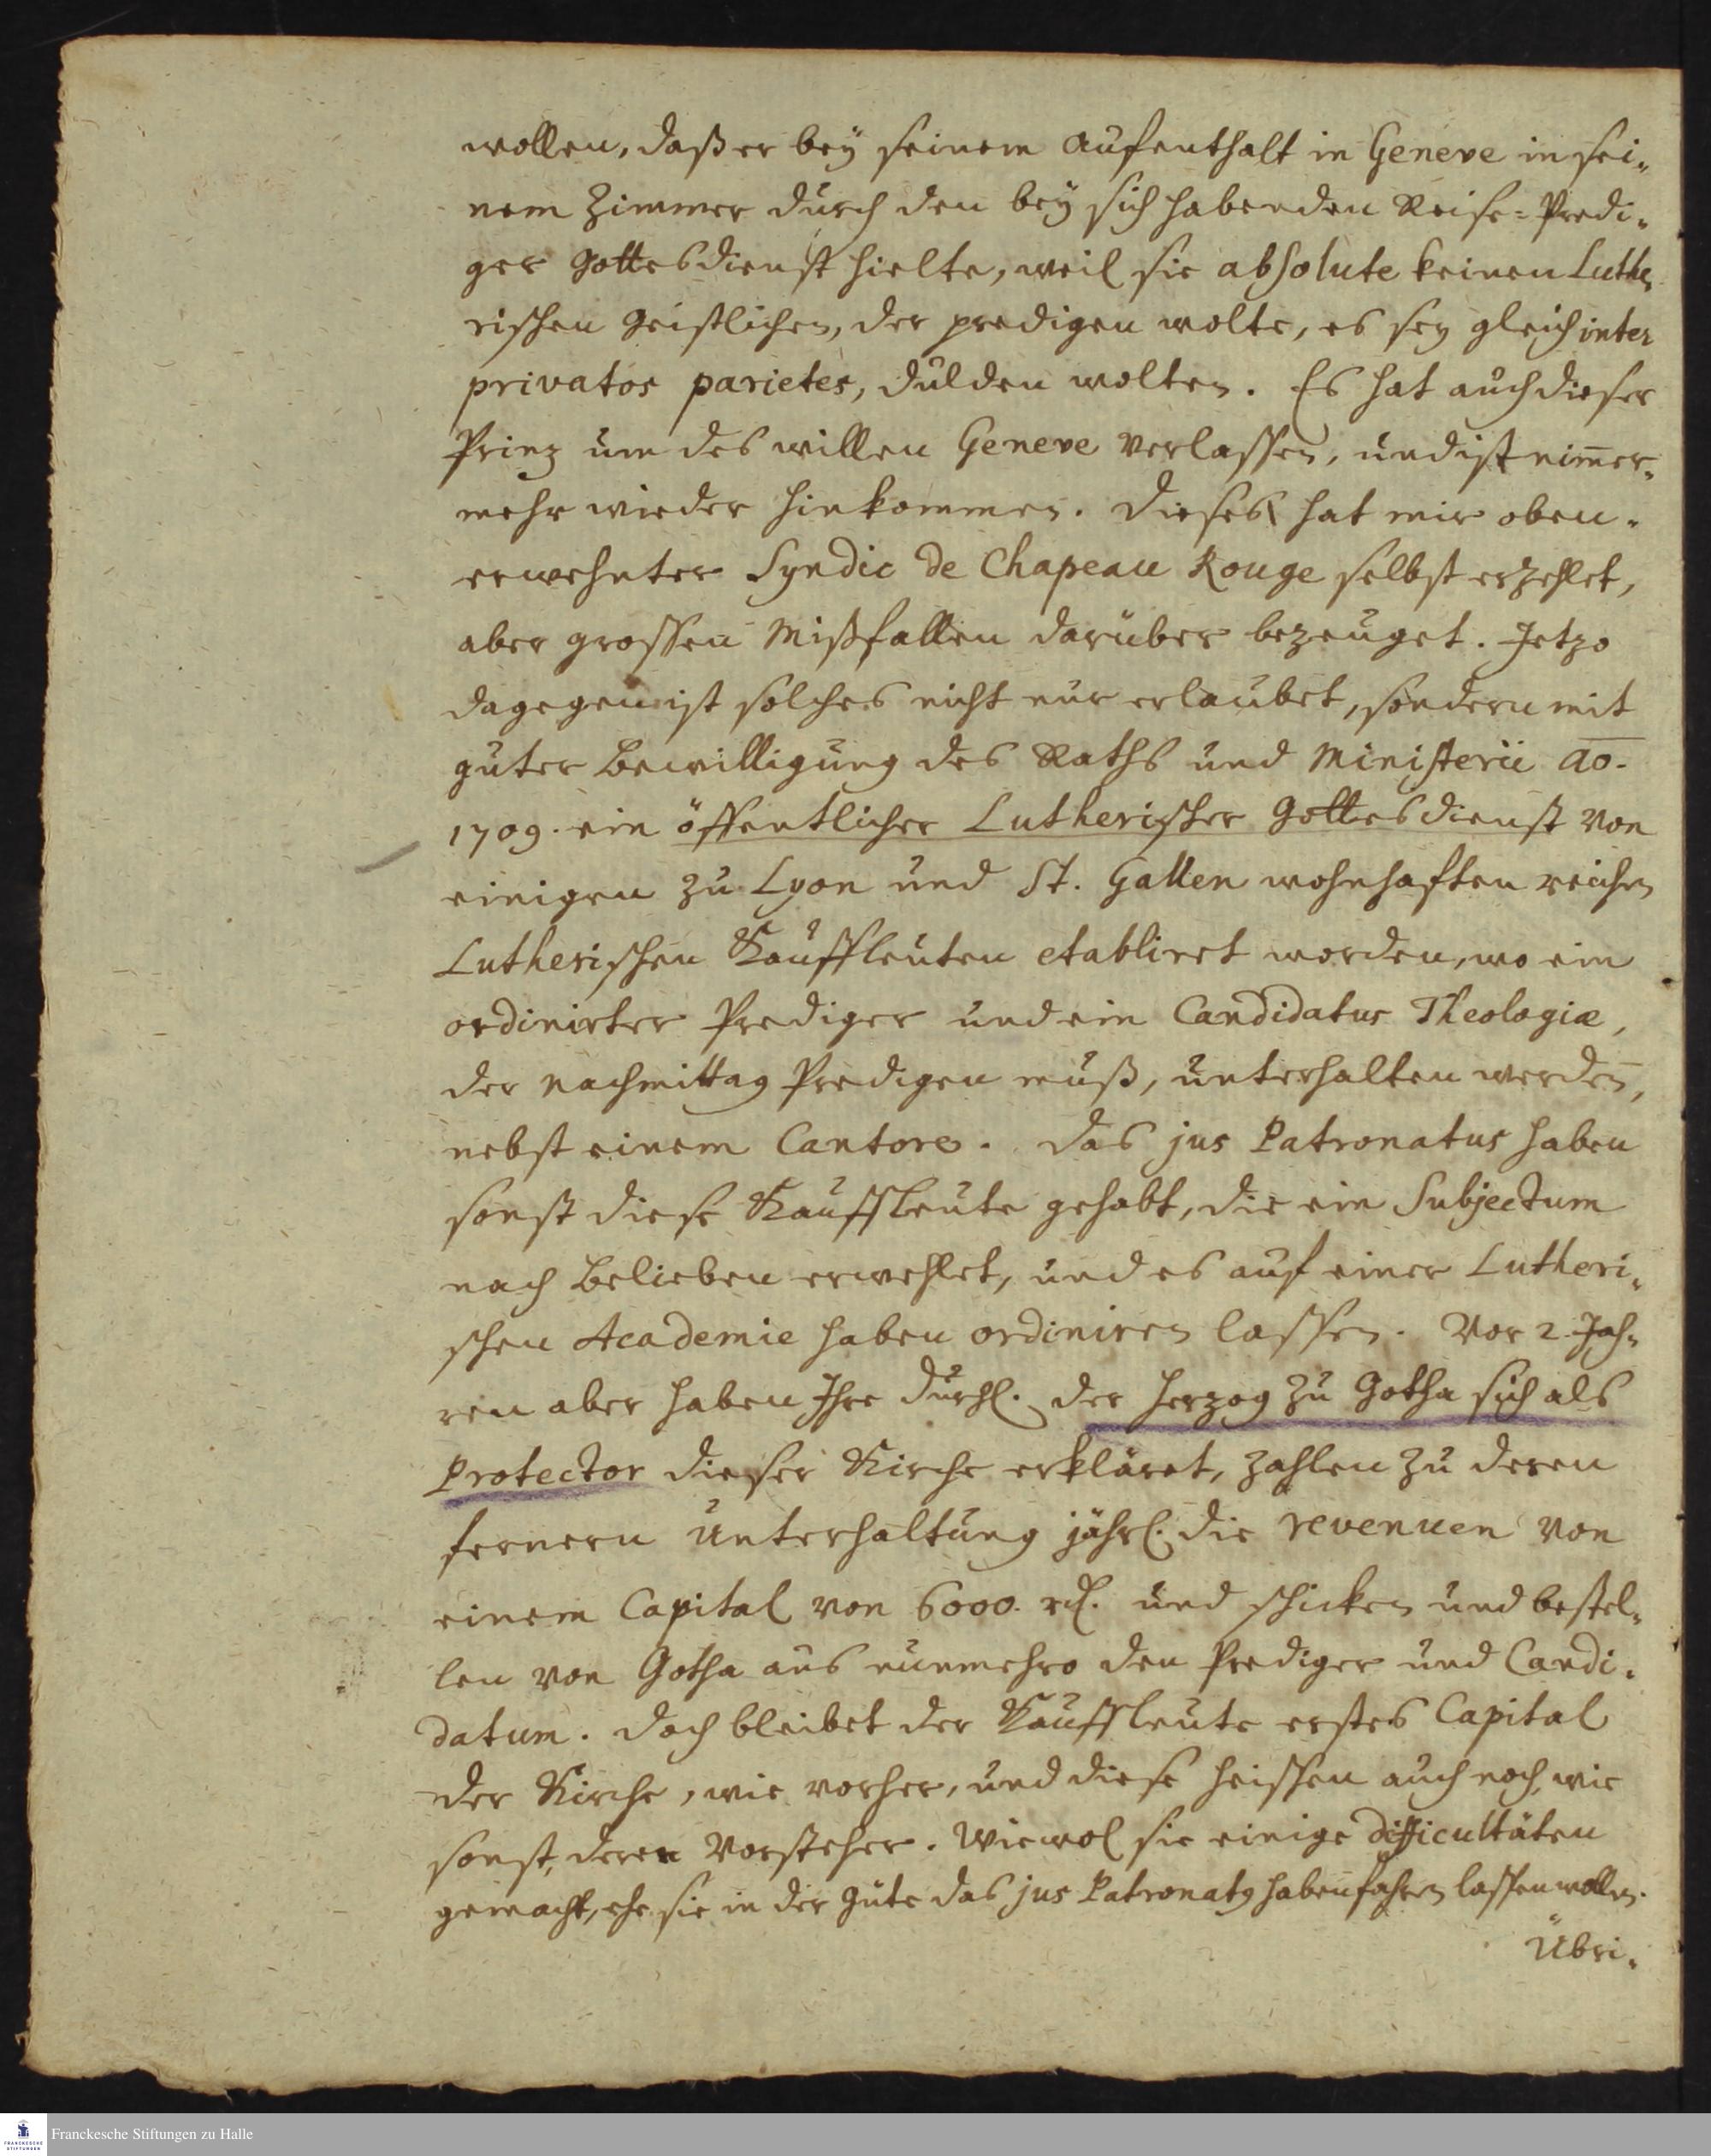 wollen, daß er bey seinem Aufenthalt in Geneve in sei„
nem Zimmer durch den bey sich habenden Reise=Predi„
ger Gottesdienst hielte, weil sie absolute keinen Luthe„
rischen Geistlichen, der predigen wolte, es sey gleich inter
privatos parietes, dulden wolten. Es hat auch dieser
Prinz um des willen Geneve verlassen, und ist nim̅er„
mehr wieder hinkommen. Dieses hat mir oben„
erwehnter Syndic de Chapeau Rouge selbst erzehlet,
aber grossen Mißfallen darüber bezeuget. Jetzo
dagegen ist solches nicht nur erlaubet, sondern mit
guter Bewilligung des Raths und Ministerii Ao.
1709. ein öffentlicher Lutherischer Gottesdienst von
einigen zu Lyon und St. Gallen wohnhaften reichen
Lutherischen Kauffleuten etabliret worden, wo ein
ordinirter Prediger und ein Candidatus Theologiæ,
der nachmittag Predigen muß, unterhalten werden̅,
nebst einem Cantore. Das jus Patronatus haben
sonst diese Kauffleute gehabt, die ein Subjectum
nach Belieben erwehlet, und es auf einer Lutheri„
schen Academie haben ordiniren lassen. Vor 2. Jah„
ren aber haben Ihre Durchl. der Herzog zu Gotha sich als
Protector dieser Kirche erkläret, zahlen zu deren
fernern Unterhaltung jährl. die revenuen von
einem Capital von 6000. rl. und schicken und bestel„
len von Gotha aus nunmehro den Prediger und Candi„
datum. Doch bleibet der Kauffleute erstes Capital
der Kirche, wie vorher, und diese heissen auch noch, wie
sonst, deren Vorsteher. Wiewol sie einige difficultäten
gemacht, ehe sie in der Güte das jus Patronatg haben fahren lassen wollen.
Übri„
Franckesche Stiftungen zu Halle
FRANCKESCHE
STIFTUNGEN